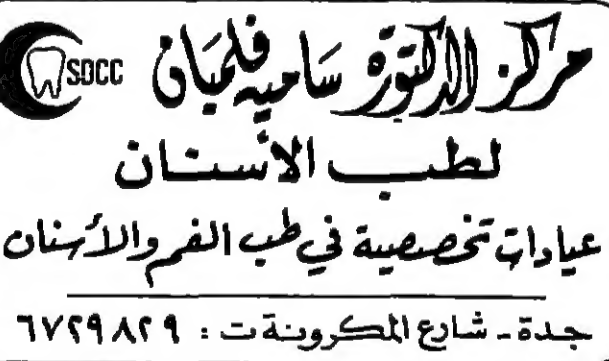 مركز الدكتورة سامية فلمبان
SDCC
لطب الأسنان
عيادات تخصصية في طب الفم والأسنان
جدة - شارع المكرونة ت : ٦٧٢٩٨٢٩